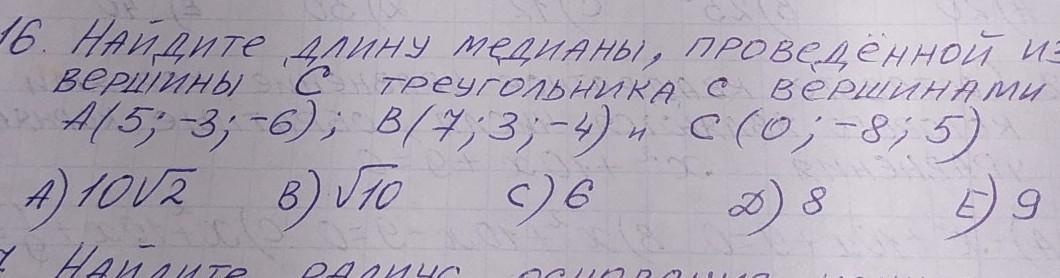 16. Найдите длину медианы, проведённой из
вершины С треугольника с вершинами
А(5;-3;-6); В(7;3;-4) и С(0;-8;5)
А) 10√2 В) √10 С) 6 D) 8 Е) 9
Найдите радиус основания